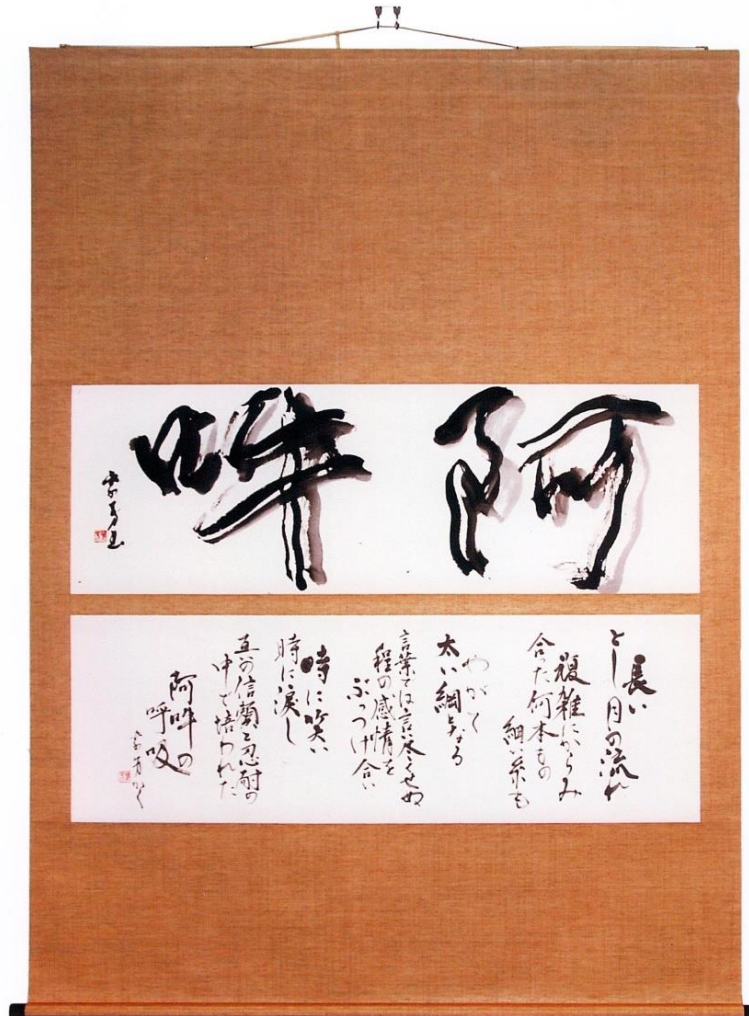 阿吽
長い
とし月の流れ
複雑にからみ
合った何本もの
細い糸も
やがて
太い綱となる
言葉では言い尽くせぬ
程の感情を
ぶっつけ合い
時に笑い
時に涙し
真の信頼と忍耐の
中で培われた
阿吽の
呼吸